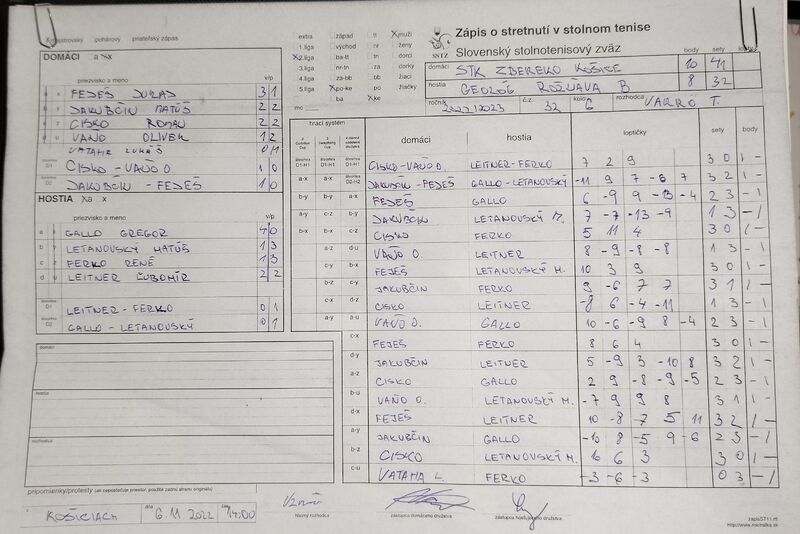 Majstrovský pohárový priateľský zápas
DOMÁCI a x
priezvisko a meno v/p
FEDEŠ JURAJ 3 1
JAKUBČIN MATÚŠ 2 2
CISKO ROMAN 2 2
VAŇO OLIVER 1 2
VATAHA LUKÁŠ 0 1
D1 CISKO - VAŇO D. 1 0
D2 JAKUBČIN - FEDEŠ 1 0
HOSTIA a x
priezvisko a meno v/p
a GALLO GREGOR 4 0
b LETANOVSKÝ MATÚŠ 1 3
c FERKO RENÉ 1 3
d LEITNER ĽUBOMÍR 2 2
D1 LEITNER - FERKO 0 1
D2 GALLO - LETANOVSKÝ 0 1
domáci
hostia
rozhodca
pripomienky/protesty (ak nepostačuje priestor, použite zadnú stranu originálu)
KOŠICIACH dňa 6.11.2022 čas 14:00
extra západ tt muži
1.liga východ nr ženy
2.liga ba-tt tn dorci
3.liga nr-tn za dorky
4.liga za-bb bb žiaci
5.liga po-ke po žiačky
mo ba ke
SSTZ
Zápis o stretnutí v stolnom tenise
Slovenský stolnotenisový zväz body sety
domáci STK ZBEREKO KOŠICE 10 41
hostia GEOLÓG ROŽŇAVA B 8 32
ročník 2022/2023 č.z. 32 kolo 6 rozhodca VARRÓ T.
hrací systém domáci hostia loptičky sety body
D1-H1 D1-H1 D1-H1 CISKO-VAŇO D. LEITNER-FERKO 7 2 9 3 0 1 -
a-x a-x D2-H2 JAKUBČIN-FEDEŠ GALLO-LETANOVSKÝ -11 9 7 -8 7 3 2 1 -
b-y b-y a-x FEDEŠ GALLO 6 -9 9 -13 -4 2 3 - 1
a-y c-z b-y JAKUBČIN LETANOVSKÝ M. 7 -7 -13 -9 1 3 - 1
b-x b-x c-z CISKO FERKO 5 11 4 3 0 1 -
a-z d-u VAŇO O. LEITNER 8 -9 -8 -8 1 3 - 1
c-y b-x FEJEŠ LETANOVSKÝ M. 10 3 9 3 0 1 -
b-z c-y JAKUBČIN FERKO 9 -6 7 7 3 1 1 -
c-x d-z CISKO LEITNER -8 6 -4 -11 1 3 - 1
a-y a-u VAŇO O. GALLO 10 -6 -9 8 -4 2 3 - 1
c-x FEJEŠ FERKO 8 6 4 3 0 1 -
d-y JAKUBČIN LEITNER 5 -9 3 -10 8 3 2 1 -
a-z CISKO GALLO 2 9 -8 -9 -5 2 3 - 1
b-u VAŇO O. LETANOVSKÝ M. -7 9 9 8 3 1 1 -
d-x FEJEŠ LEITNER 10 -8 -7 5 11 3 2 1 -
a-y JAKUBČIN GALLO -10 8 -5 9 -6 2 3 - 1
b-z CISKO LETANOVSKÝ M. 10 6 3 3 0 1 -
c-u VATAHA L. FERKO -3 -6 -3 0 3 - 1
hlavný rozhodca zástupca domáceho družstva zástupca hosťujúceho družstva
zapisST11.rtf
http://www.michalka.sk